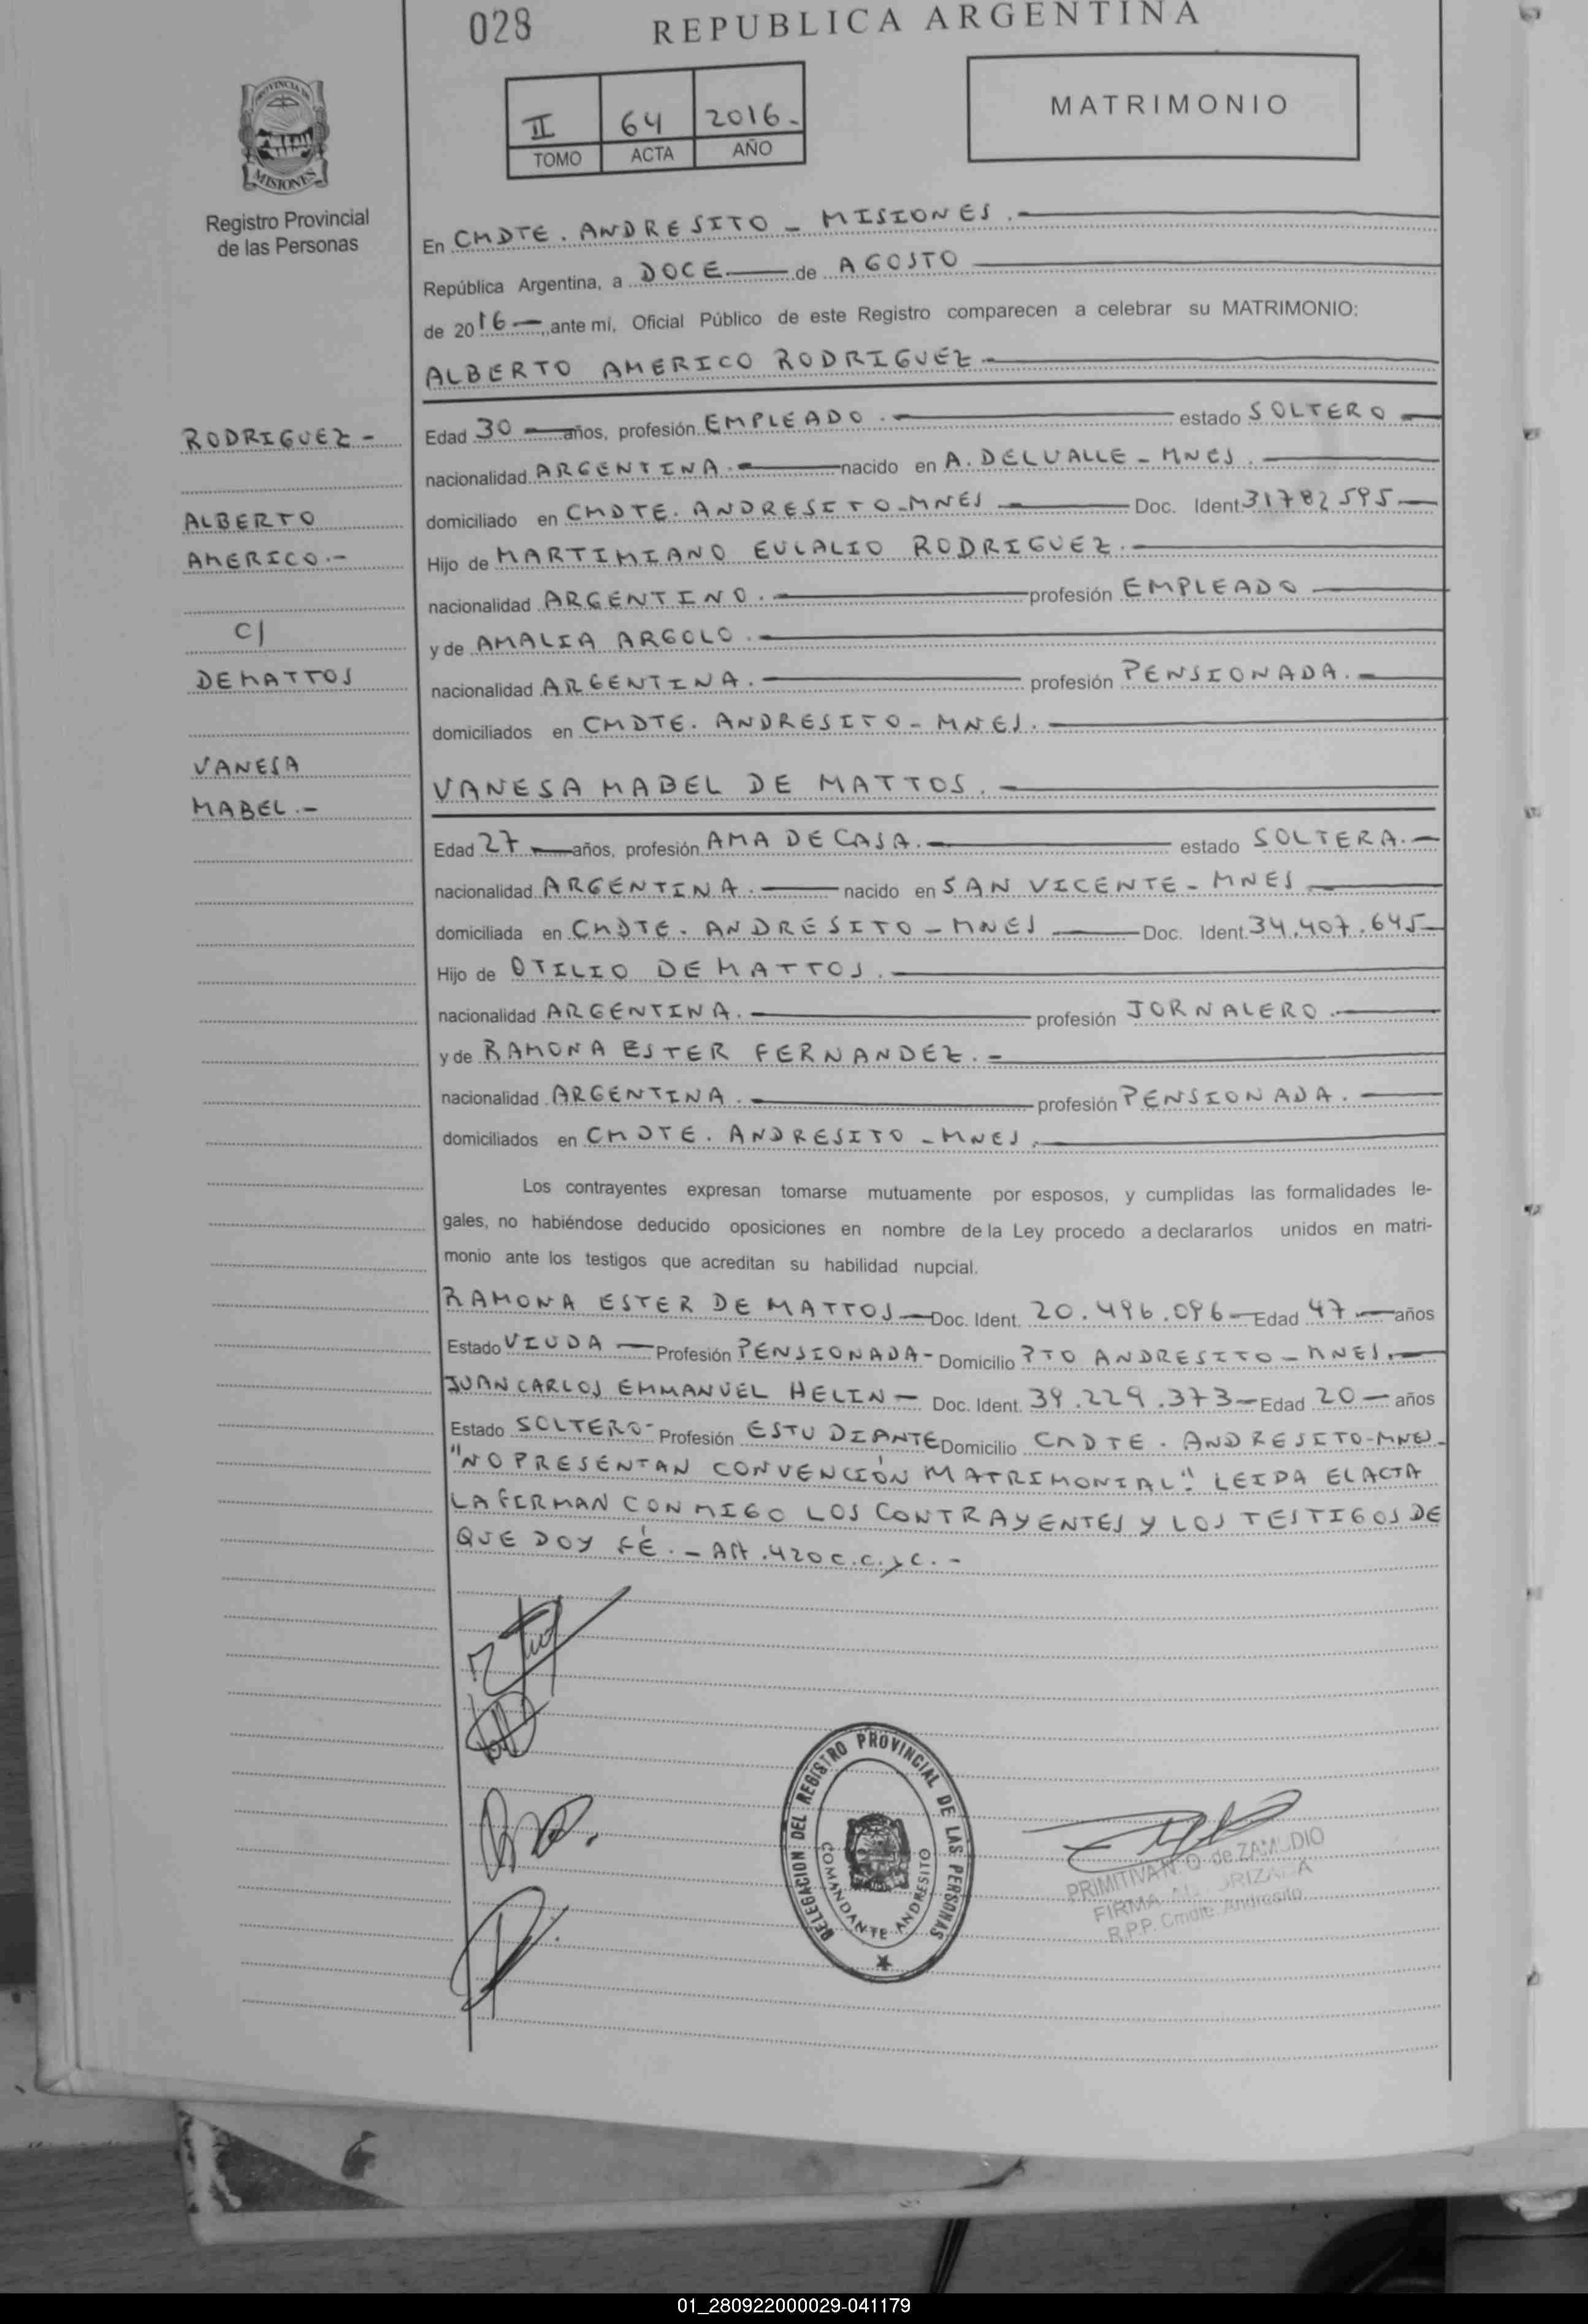 028
REPUBLICA ARGENTINA
II 64 2016.-
TOMO ACTA AÑO
MATRIMONIO
PROVINCIA DE
MISIONES
Registro Provincial
de las Personas
En CMDTE. ANDRESITO - MISIONES.-
República Argentina, a DOCE de AGOSTO
de 2016 -, ante mí, Oficial Público de este Registro comparecen a celebrar su MATRIMONIO:
ALBERTO AMERICO RODRIGUEZ.-
RODRIGUEZ -
ALBERTO
AMERICO.-
C/
DEMATTOS
VANESA
MABEL.-
Edad 30 - años, profesión EMPLEADO.- estado SOLTERO -
nacionalidad ARGENTINA.- nacido en A. DEL VALLE - MNES.-
domiciliado en CMDTE. ANDRESITO-MNES - Doc. Ident 31782595-
Hijo de MARTIMIANO EULALIO RODRIGUEZ.-
nacionalidad ARGENTINO.- profesión EMPLEADO -
y de AMALIA ARGOLO.-
nacionalidad ARGENTINA.- profesión PENSIONADA.-
domiciliados en CMDTE. ANDRESITO - MNES.-
VANESA MABEL DE MATTOS.-
Edad 27 - años, profesión AMA DE CASA.- estado SOLTERA.-
nacionalidad ARGENTINA.- nacido en SAN VICENTE - MNES -
domiciliada en CMDTE. ANDRESITO - MNES - Doc. Ident. 34.407.645-
Hijo de OTILIO DE MATTOS.-
nacionalidad ARGENTINA.- profesión JORNALERO.-
y de RAMONA ESTER FERNANDEZ.-
nacionalidad ARGENTINA.- profesión PENSIONADA.-
domiciliados en CMDTE. ANDRESITO - MNES.-
Los contrayentes expresan tomarse mutuamente por esposos, y cumplidas las formalidades le-
gales, no habiéndose deducido oposiciones en nombre de la Ley procedo a declararlos unidos en matri-
monio ante los testigos que acreditan su habilidad nupcial.
RAMONA ESTER DE MATTOS - Doc. Ident. 20.496.096 - Edad 47.- años
Estado VIUDA - Profesión PENSIONADA - Domicilio PTO ANDRESITO - MNES.-
JUAN CARLOS EMMANUEL HELIN - Doc. Ident. 39.229.373 - Edad 20 - años
Estado SOLTERO - Profesión ESTUDIANTE Domicilio CMDTE. ANDRESITO-MNES-
"NO PRESENTAN CONVENCIÓN MATRIMONIAL". LEIDA EL ACTA
LA FIRMAN CONMIGO LOS CONTRAYENTES Y LOS TESTIGOS DE
QUE DOY FÉ.- Art.420 C.C.y C.-
DELEGACION DEL REGISTRO PROVINCIAL DE LAS PERSONAS
COMANDANTE ANDRESITO
PRIMITIVA de ZAMUDIO
FIRMA
R.P.P. Cmdte. Andresito
01_280922000029-041179